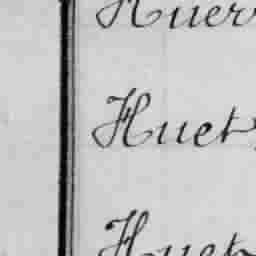 Huer
Huet
Huet